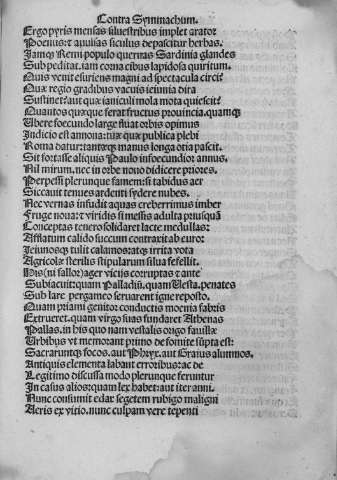 Contra Symmachum.
Ergo pyris mensas siluestribus implet arator
Poenus: et auulsas siculus depascitur herbas.
Jamq; Remi populo quernas Sardinia glandes
Suppeditat. iam corna cibus lapidosa quiritum.
Quis venit esuriens magni ad spectacula circi?
Quæ regio gradibus vacuis ieiunia dira
Sustinet? aut quæ ianiculi mola muta quiescit?
Quantos quæque ferat fructus prouincia. quamq;
Ubere foecundo large fluat orbis opimus
Indicio est annona: tuæ quæ publica plebi
Roma datur: tantæq; manus longa otia pascit.
Sit fortasse aliquis Paulo infoecundior annus.
Nil mirum. nec in orbe nouo didicere priores.
Perpessi plerunque famem: si tabidus aer
Siccauit tenues ardenti sydere nubes.
Nec vernas infudit aquas creberrimus imber
Fruge noua: et viridis si messis adulta priusquã
Conceptas tenero solidaret lacte medullas:
Afflatum calido succum contraxit ab euro:
Ieiunosq; tulit calamos: atq; irrita vota
Agricolæ sterilis stipularum silua fefellit.
His (ni fallor) ager vicijs corruptas et ante
Subiacuit: quam Palladiũ. quam Uesta. penates
Sub lare pergameo seruarent igne reposto.
Quam priami genitor conductis moenia fabris
Extrueret. quam virgo suas fundaret Athenas
Pallas. in his quo nam vestalis origo fauillæ
Urbibus vt memorant primo de fomite sũpta est:
Sacraruntq; focos. aut Phryx. aut Graius alumnos.
Antiquis elementa labant erroribus: ac de
Legitimo discussa modo plerunque feruntur
In casus alios: quam lex habet: aut iter anni.
Nunc consumit edax segetem rubigo maligni
Aeris ex vitio. nunc culpam vere tepenti